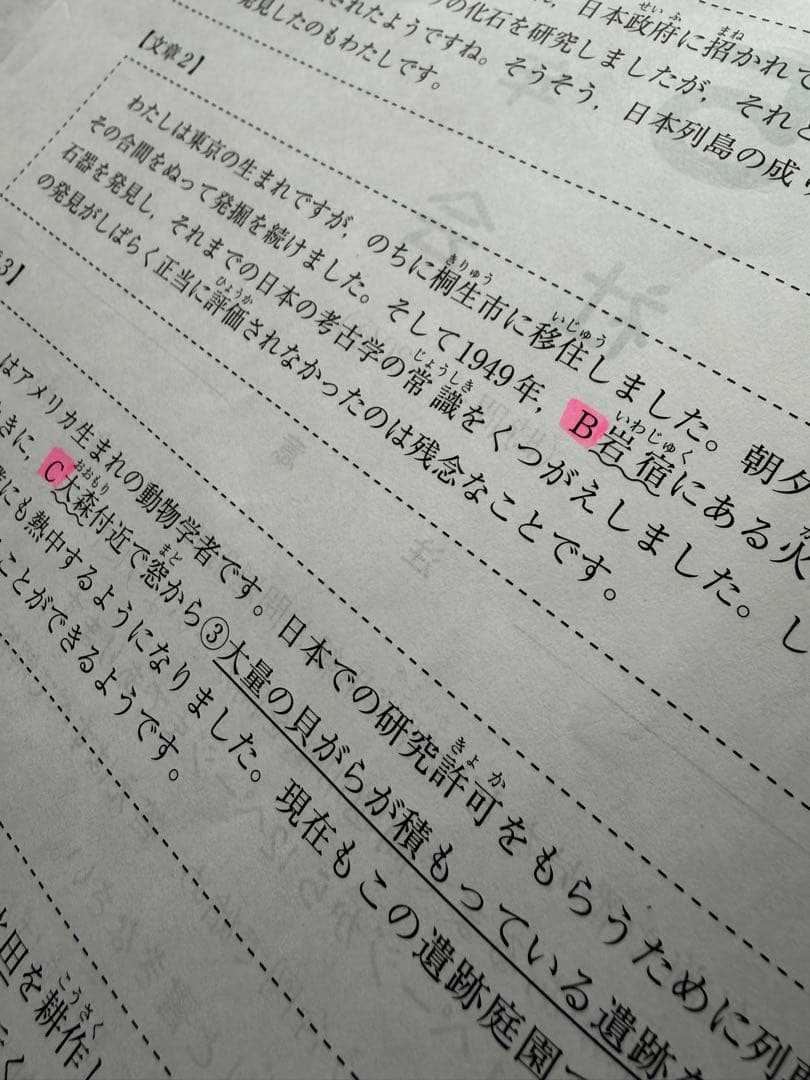 日本政府に招かれて
の化石を研究しましたが，それと
されたようですね。そうそう，日本列島の成り
発見したのもわたしです。
【文章2】
わたしは東京の生まれですが，のちに桐生市に移住しました。朝夕
その合間をぬって発掘を続けました。そして1949年，B岩宿にある火
石器を発見し，それまでの日本の考古学の常識をくつがえしました。し
の発見がしばらく正当に評価されなかったのは残念なことです。
3】
はアメリカ生まれの動物学者です。日本での研究許可をもらうために列車
きに，C大森付近で窓から③大量の貝がらが積もっている遺跡を
にも熱中するようになりました。現在もこの遺跡庭園で
ことができるようです。
田を耕作し